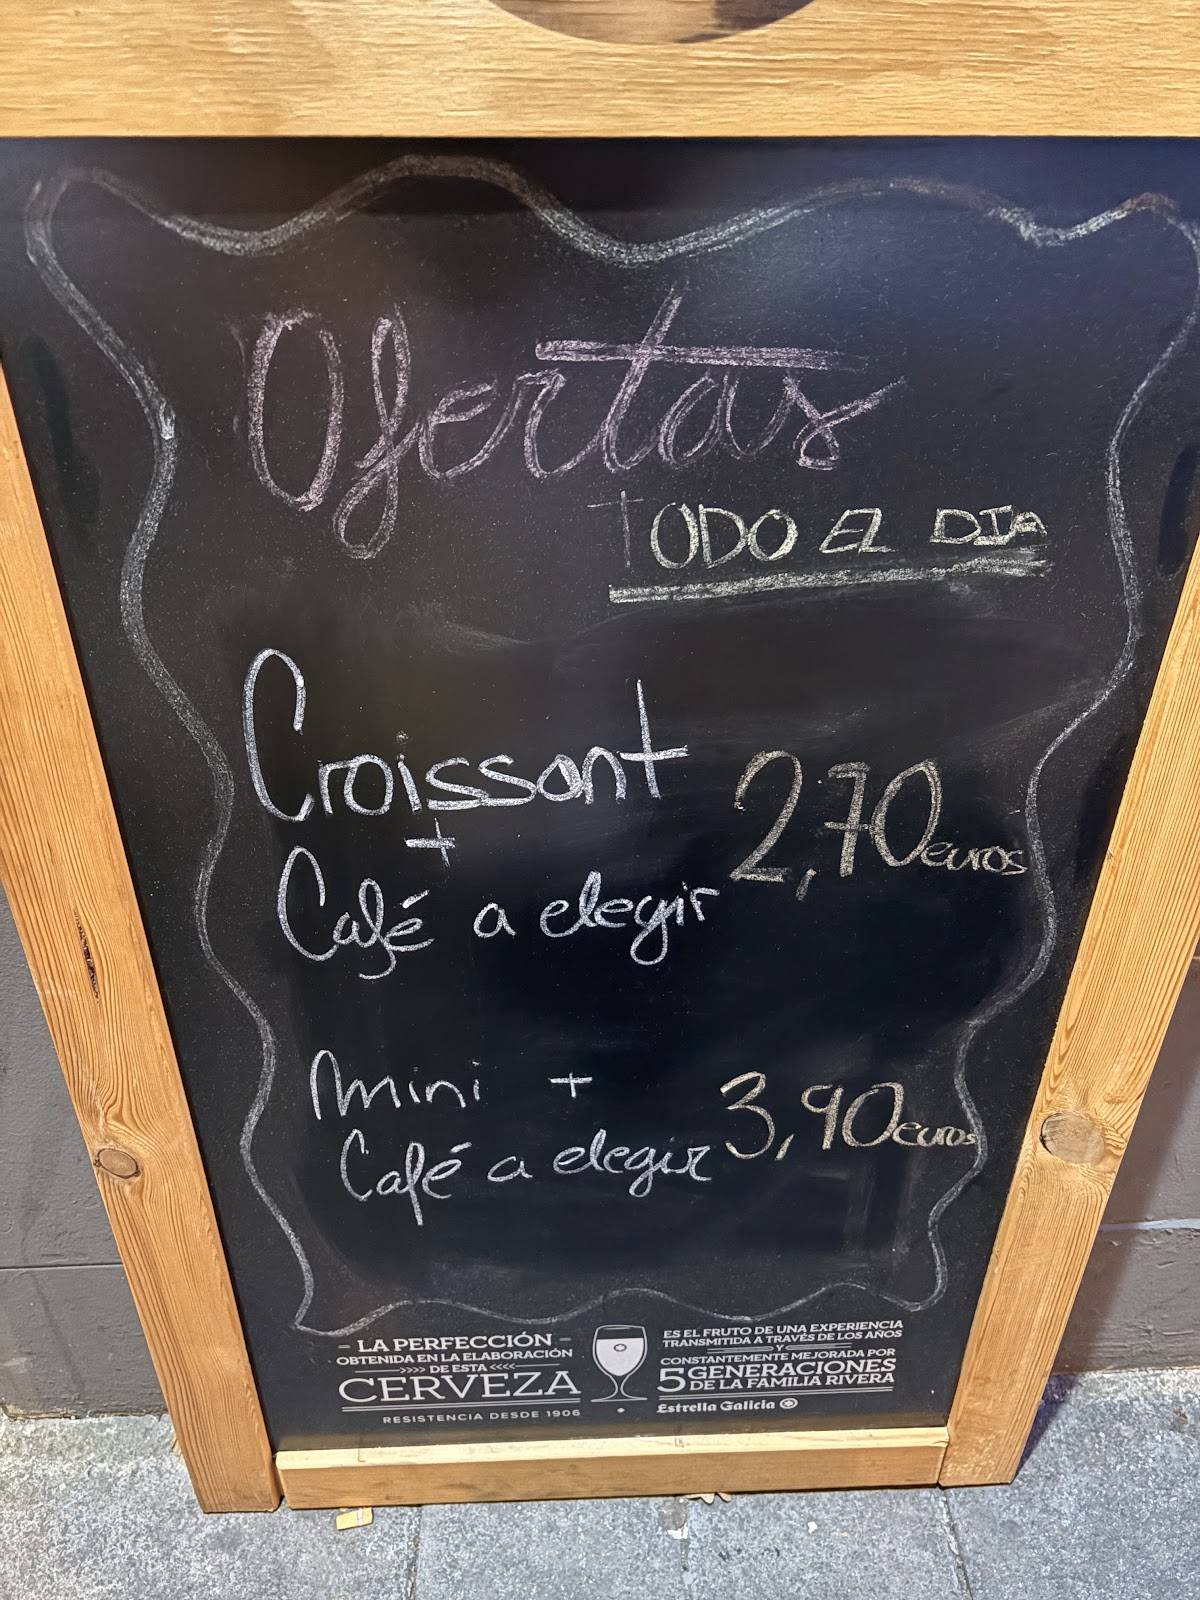 Ofertas
TODO EL DIA
Croissant
+
2,70 euros
Café a elegir
mini +
3,90 euros
Café a elegir
- LA PERFECCIÓN -
OBTENIDA EN LA ELABORACIÓN
>>>> DE ESTA <<<<
CERVEZA
RESISTENCIA DESDE 1906
ES EL FRUTO DE UNA EXPERIENCIA
TRANSMITIDA A TRAVÉS DE LOS AÑOS
Y
CONSTANTEMENTE MEJORADA POR
5 GENERACIONES
DE LA FAMILIA RIVERA
Estrella Galicia